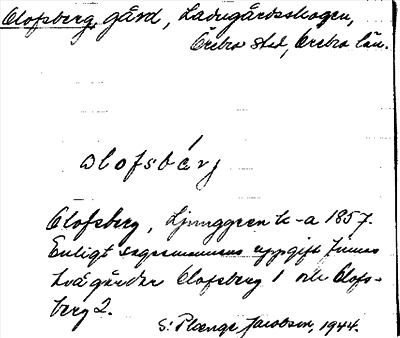 Olofsberg, gård, Ladugårdsskogen,
Örebro stad, Örebro län.
olofsbérj
Olofsberg, Ljunggren k-a 1857.
Enligt sagesmannens uppgift finnas
två gårdar Olofsberg 1 och Olofs-
berg 2.
S: Plænge Jacobson, 1944.